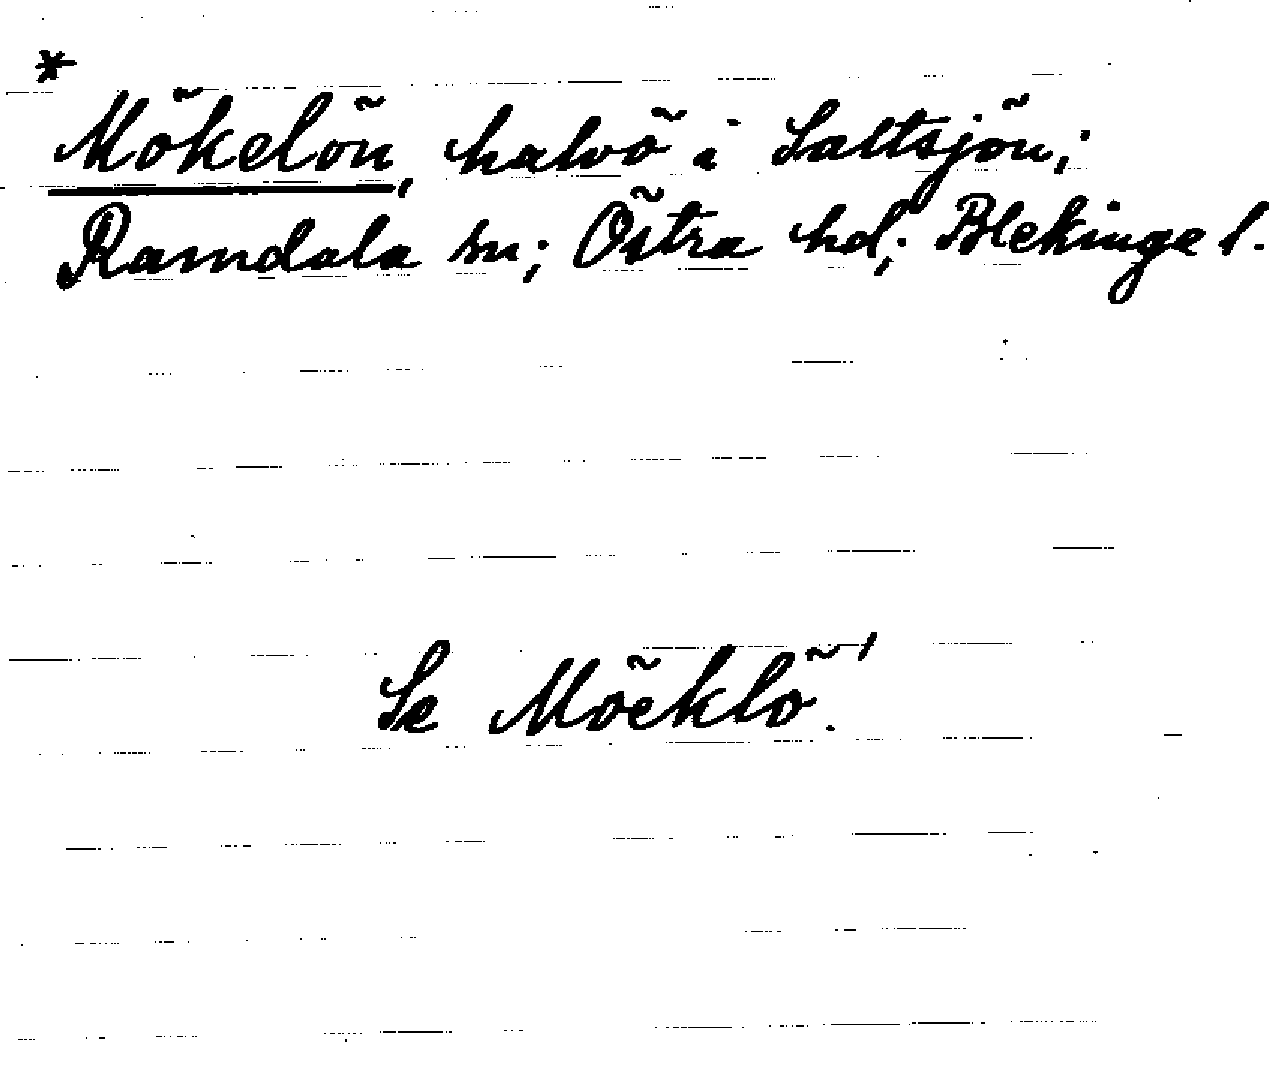 *
Mökelön, halvö i Saltsjön;
Ramdala sn; Östra hd; Blekinge l.
Se Möcklö.